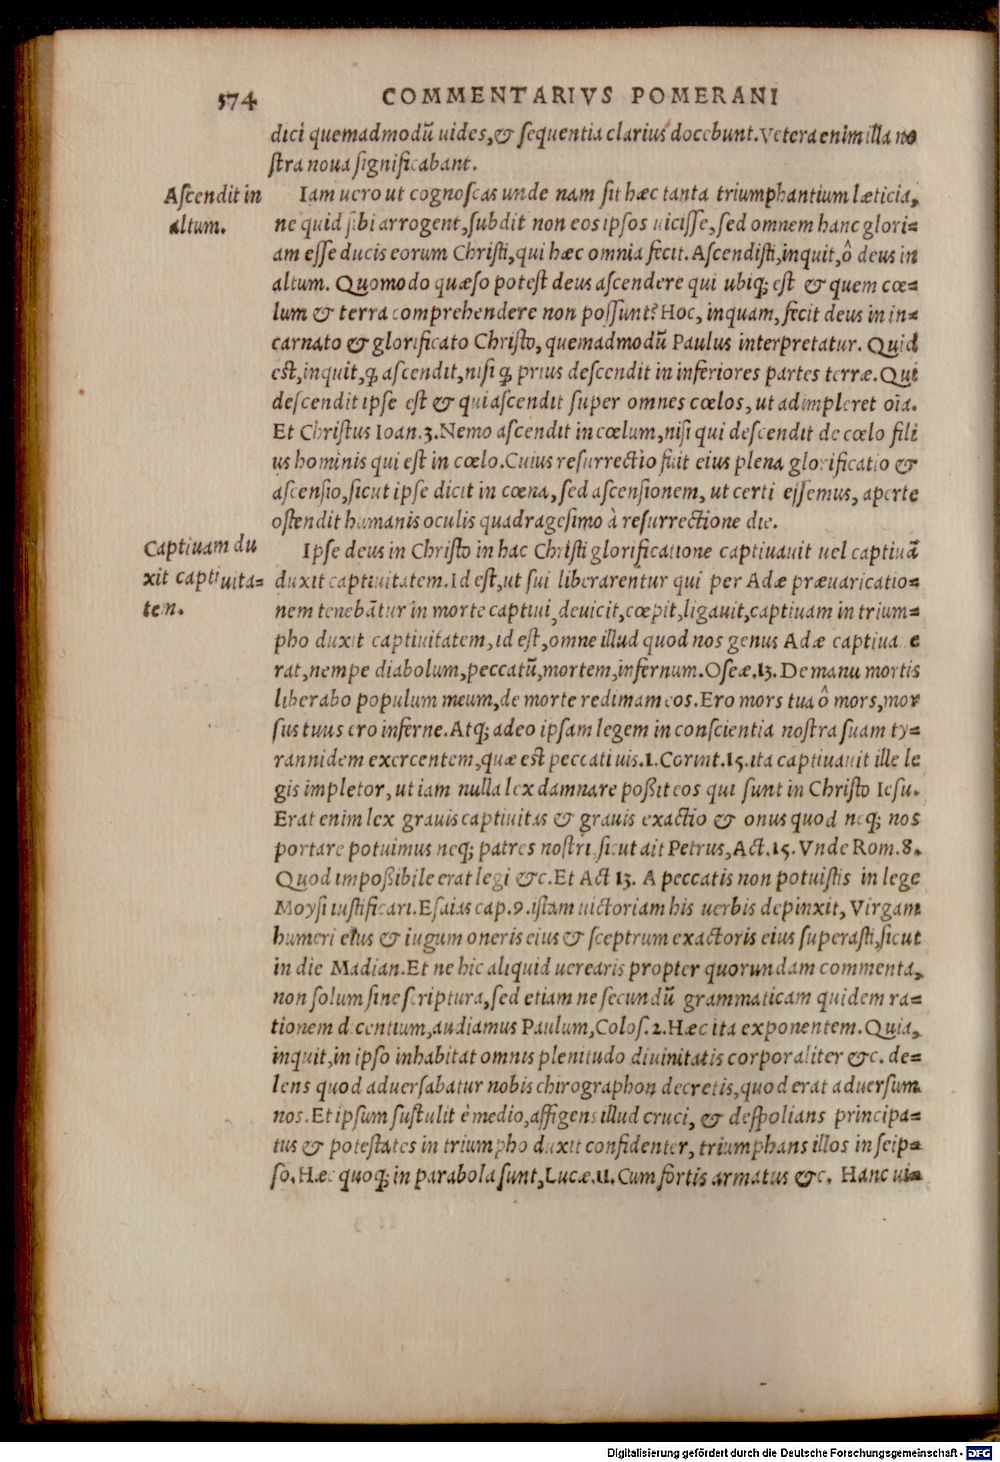 374 COMMENTARIVS POMERANI
dici quemadmodũ uides, & sequentia clarius docebunt. Vetera enim illa no
stra noua significabant.
Ascendit in
altum.
Iam uero ut cognoscas unde nam sit hæc tanta triumphantium læticia,
ne quid sibi arrogent, subdit non eos ipsos uicisse, sed omnem hanc glori=
am esse ducis eorum Christi, qui hæc omnia fecit. Ascendisti, inquit, ô deus in
altum. Quomodo quæso potest deus ascendere qui ubiq; est & quem cœ=
lum & terra comprehendere non possunt? Hoc, inquam, fecit deus in in=
carnato & glorificato Christo, quemadmodũ Paulus interpretatur. Quid
est, inquit, ꝙ ascendit, nisi ꝙ prius descendit in inferiores partes terræ. Qui
descendit ipse est & qui ascendit super omnes cœlos, ut adimpleret oĩa.
Et Christus Ioan. 3. Nemo ascendit in cœlum, nisi qui descendit de cœlo fili
us hominis qui est in cœlo. Cuius resurrectio fuit eius plena glorificatio &
ascensio, sicut ipse dicit in cœna, sed ascensionem, ut certi essemus, aperte
ostendit humanis oculis quadragesimo à resurrectione die.
Captiuam du
xit captiuita=
tem.
Ipse deus in Christo in hac Christi glorificatione captiuauit uel captiuã
duxit captiuitatem. Id est, ut sui liberarentur qui per Adæ præuaricatio=
nem tenebãtur in morte captiui, deuicit, cœpit, ligauit, captiuam in trium=
pho duxit captiuitatem, id est, omne illud quod nos genus Adæ captiua e
rat, nempe diabolum, peccatũ, mortem, infernum. Oseæ. 13. De manu mortis
liberabo populum meum, de morte redimam eos. Ero mors tua ô mors, mor
sus tuus ero inferne. Atq; adeo ipsam legem in conscientia nostra suam ty=
rannidem exercentem, quæ est peccati uis. 1. Corint. 15. ita captiuauit ille le
gis impletor, ut iam nulla lex damnare poßit eos qui sunt in Christo Iesu.
Erat enim lex grauis captiuitas & grauis exactio & onus quod neq; nos
portare potuimus neq; patres nostri, sicut ait Petrus, Act. 15. Vnde Rom. 8.
Quod impoßibile erat legi &c. Et Act 13. A peccatis non potuistis in lege
Moysi iustificari. Esaias cap. 9. istam uictoriam his uerbis depinxit, Virgam
humeri eius & iugum oneris eius & sceptrum exactoris eius superasti, sicut
in die Madian. Et ne hic aliquid uerearis propter quorundam commenta,
non solum sine scriptura, sed etiam ne secundũ grammaticam quidem ra=
tionem docentium, audiamus Paulum, Colos. 2. Hæc ita exponentem. Quia,
inquit, in ipso inhabitat omnis plenitudo diuinitatis corporaliter &c. de=
lens quod aduersabatur nobis chirographon decretis, quod erat aduersum
nos. Et ipsum sustulit è medio, affigens illud cruci, & despolians principa=
tus & potestates in triumpho duxit confidenter, triumphans illos in seip=
so. Hæc quoq; in parabola sunt, Lucæ. 11. Cum fortis armatus &c. Hanc ui=
Digitalisierung gefördert durch die Deutsche Forschungsgemeinschaft - DFG